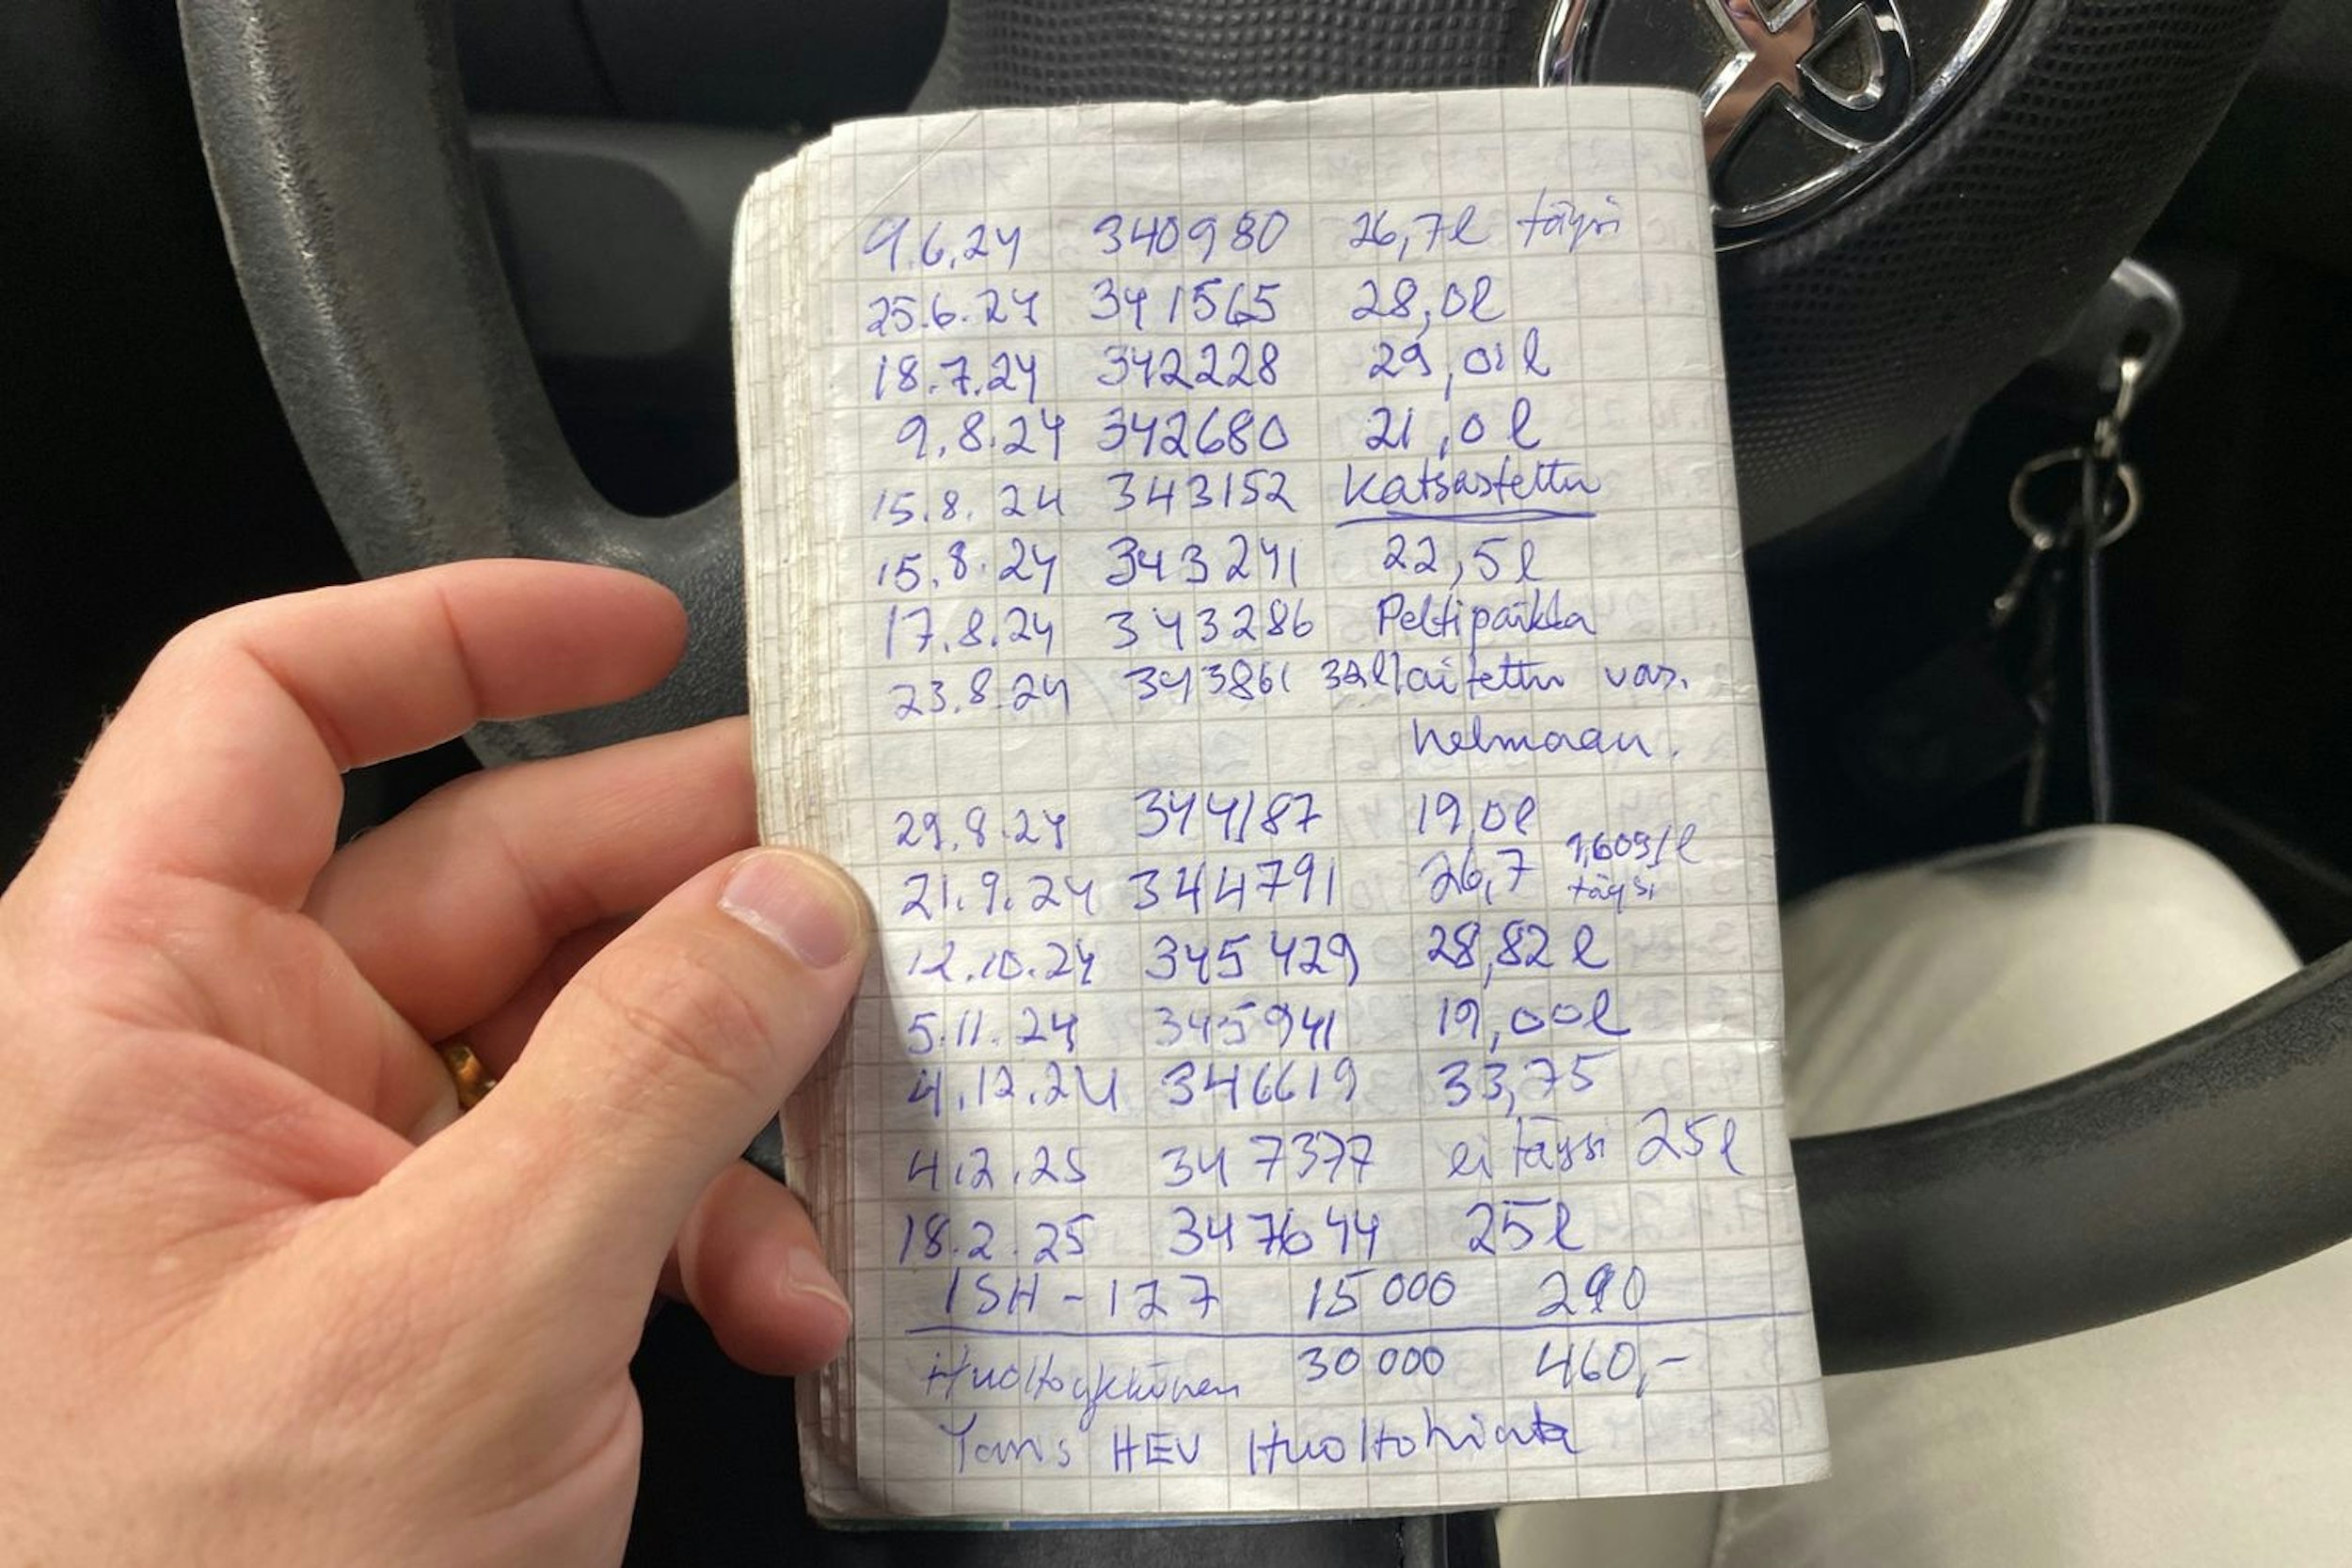 9.6.24 340980 26,7l täysi
25.6.24 341565 28,0l
18.7.24 342228 29,01l
9.8.24 342680 21,0l
15.8.24 343152 Katsastettu
15.8.24 343241 22,5l
17.8.24 343286 Peltipaikka
23.8.24 343861 32l laitettu vas.
helmaan.
29.8.24 344187 19,0l
21.9.24 344791 26,7 1,609/l täysi
12.10.24 345429 28,82l
5.11.24 345941 19,00l
4.12.24 346619 33,75
4.2.25 347377 ei täysi 25l
18.2.25 347644 25l
ISH-127 15000 290
Huoltoykkönen 30000 460,-
Yaris HEV Huoltohinta